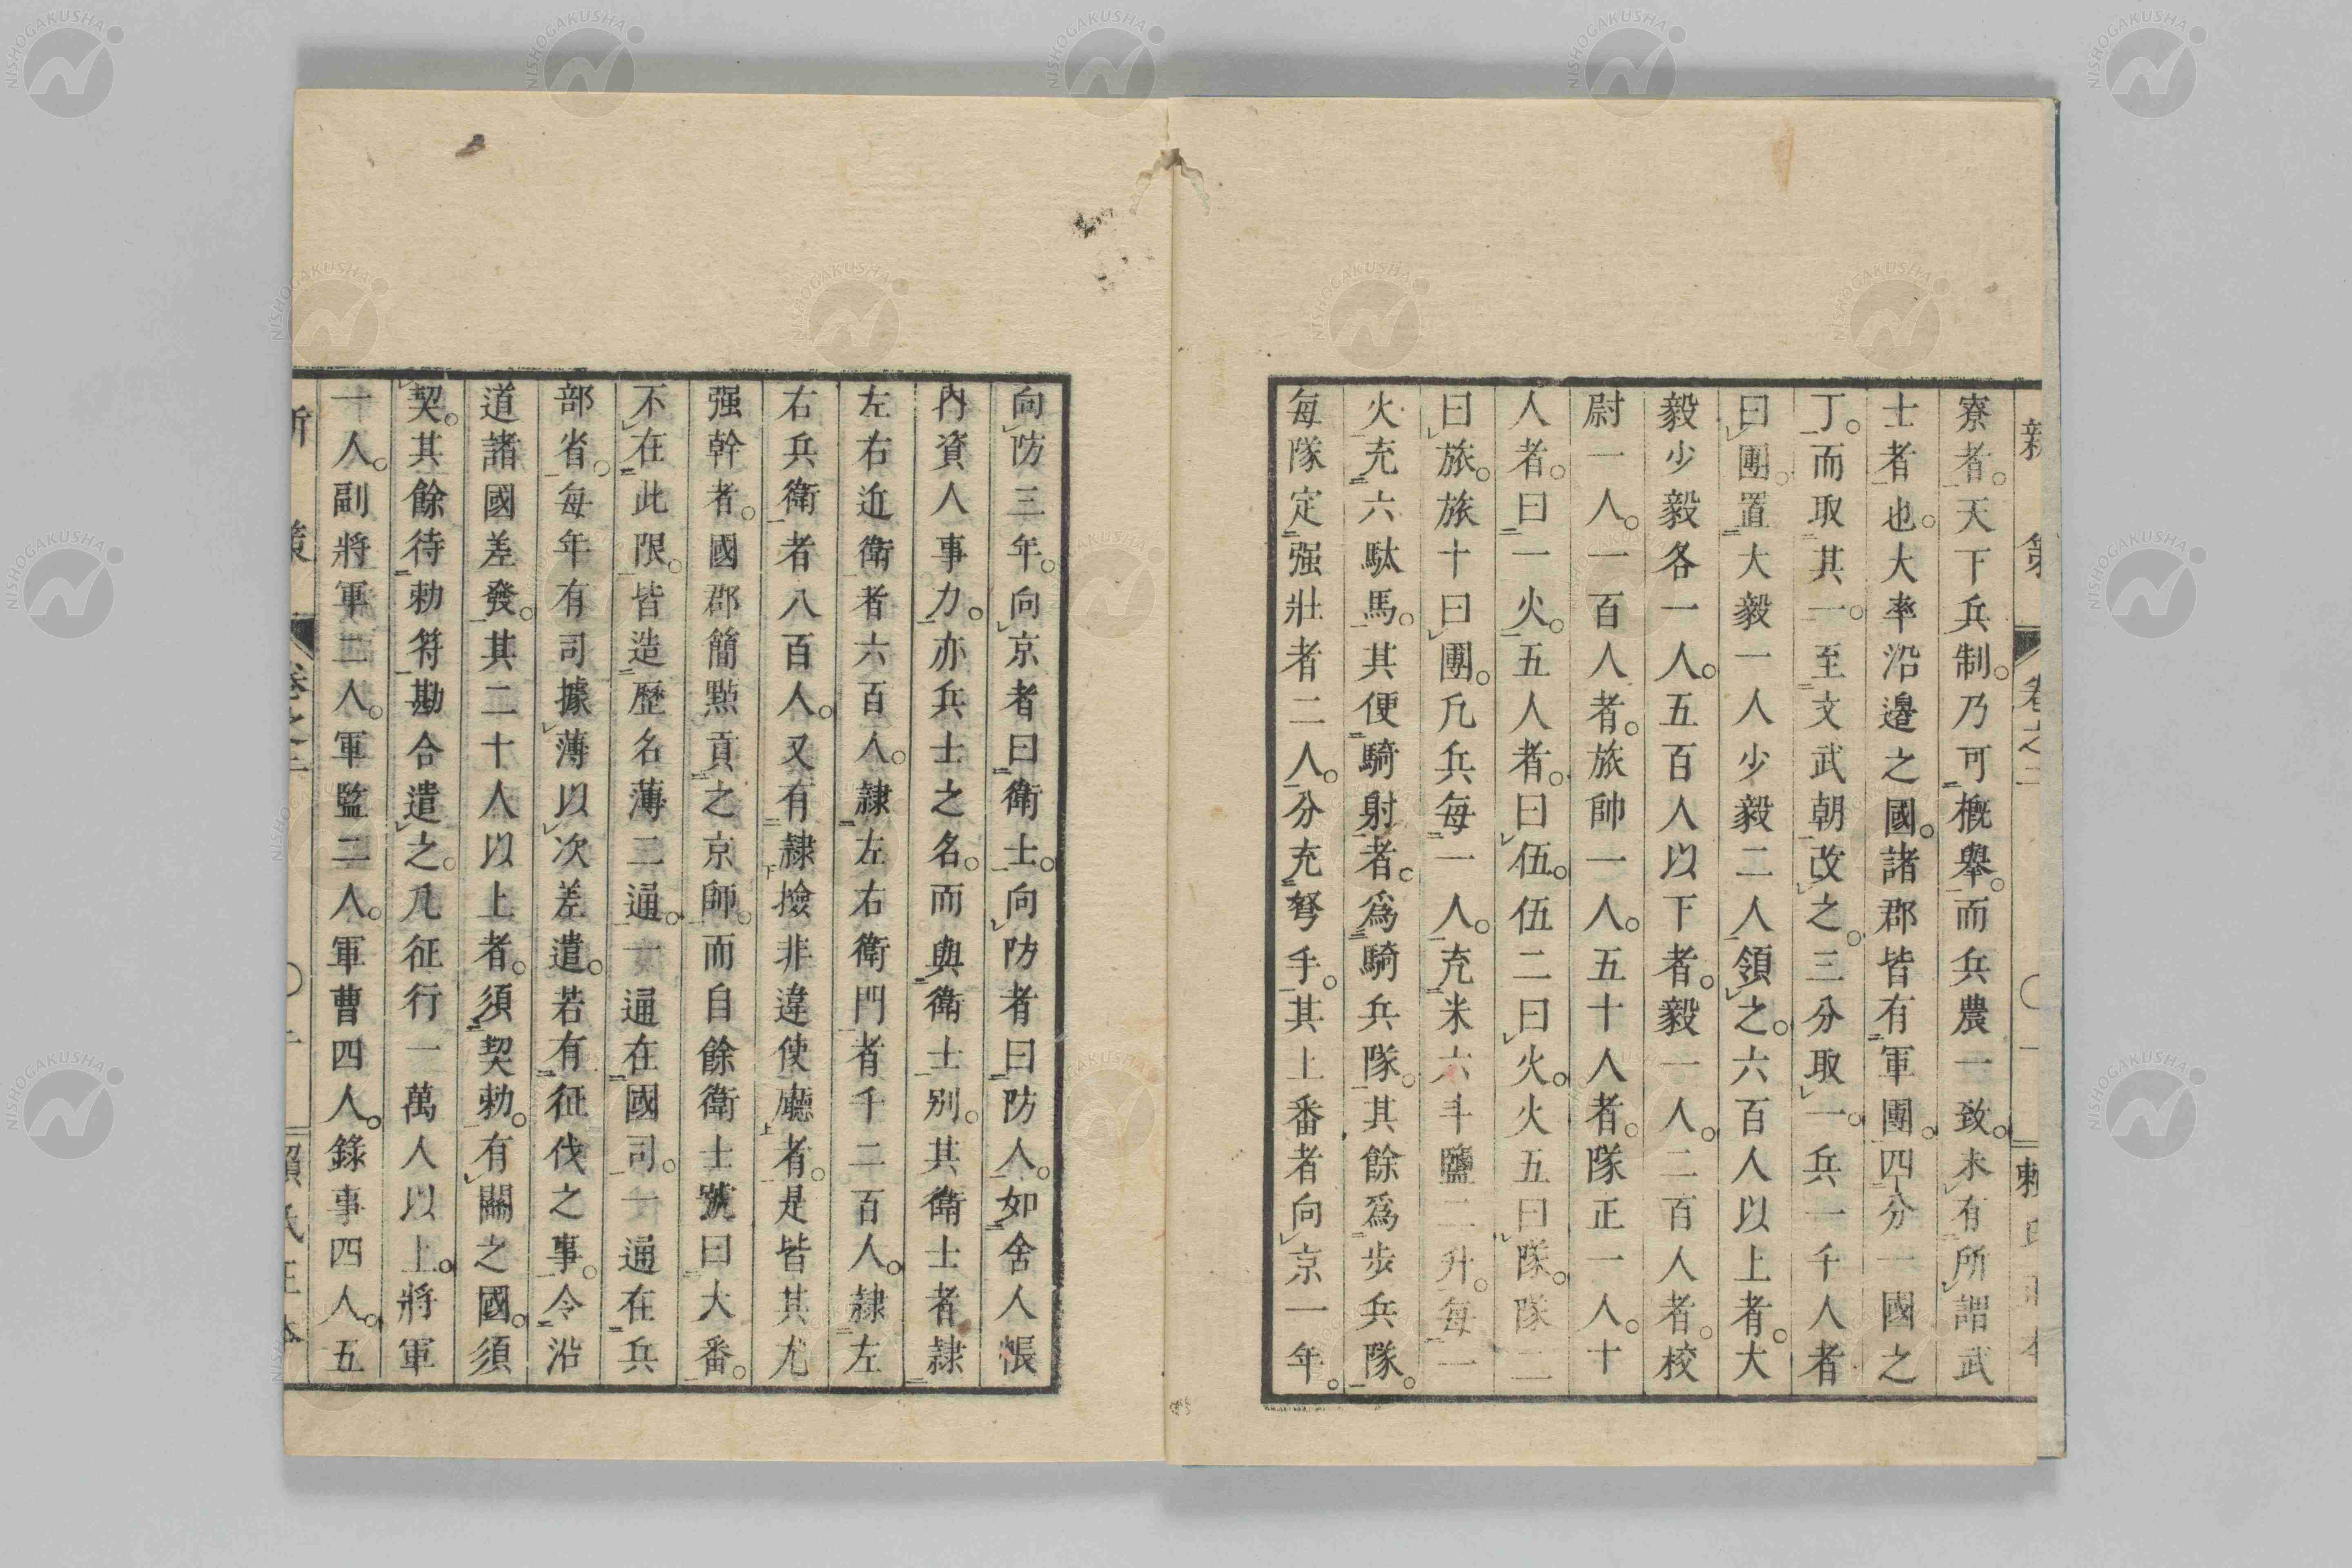 寮者。天下兵制。乃可概擧。而兵農一致。未有所謂武
士者也。大率沿邊之國。諸郡皆有軍團。四分一國之
丁。而取其一。至文武朝改之。三分取一。兵一千人者
曰團。置大毅一人少毅二人領之。六百人以上者。大
毅少毅各一人。五百人以下者。毅一人。二百人者。校
尉一人。一百人者。旅帥一人。五十人者。隊正一人。十
人者。曰一火。五人者。曰伍。伍二曰火。火五曰隊。隊二
曰旅。旅十曰團。凢兵每一人。充米六斗鹽二升。每一
火充六馱馬。其便騎射者。爲騎兵隊。其餘爲步兵隊。
每隊定强壯者二人。分充弩手。其上番者向京一年。
向防三年。向京者曰衛士。向防者曰防人。如舍人帳
內資人事力。亦兵士之名。而與衛士別。其衛士者隷
左右近衛者六百人。隷左右衛門者千二百人。隷左
右兵衛者八百人。又有隷撿非違使廳者。是皆其尤
强幹者。國郡簡點貢之京師。而自餘衛士號曰大番。
不在此限。皆造歷名薄二通。一通在國司。一通在兵
部省。每年有司據薄以次差遣。若有征伐之事。令沿
道諸國差發。其二十人以上者。須契勅。有關之國。須
契。其餘待勅符勘合遣之。凢征行一萬人以上。將軍
一人。副將軍二人。軍監二人。軍曹四人。錄事四人。五